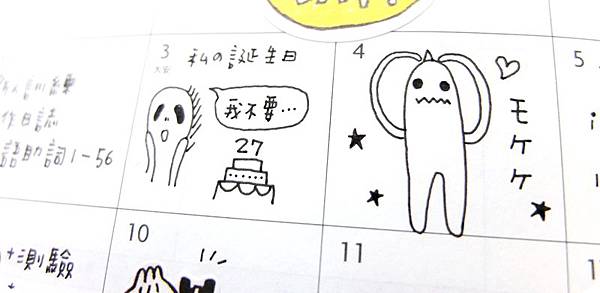 3 私の誕生日
大安
我不要…
27
4
モケケ
5
訓練
作日誌
語助詞1-56
10
11
+測驗